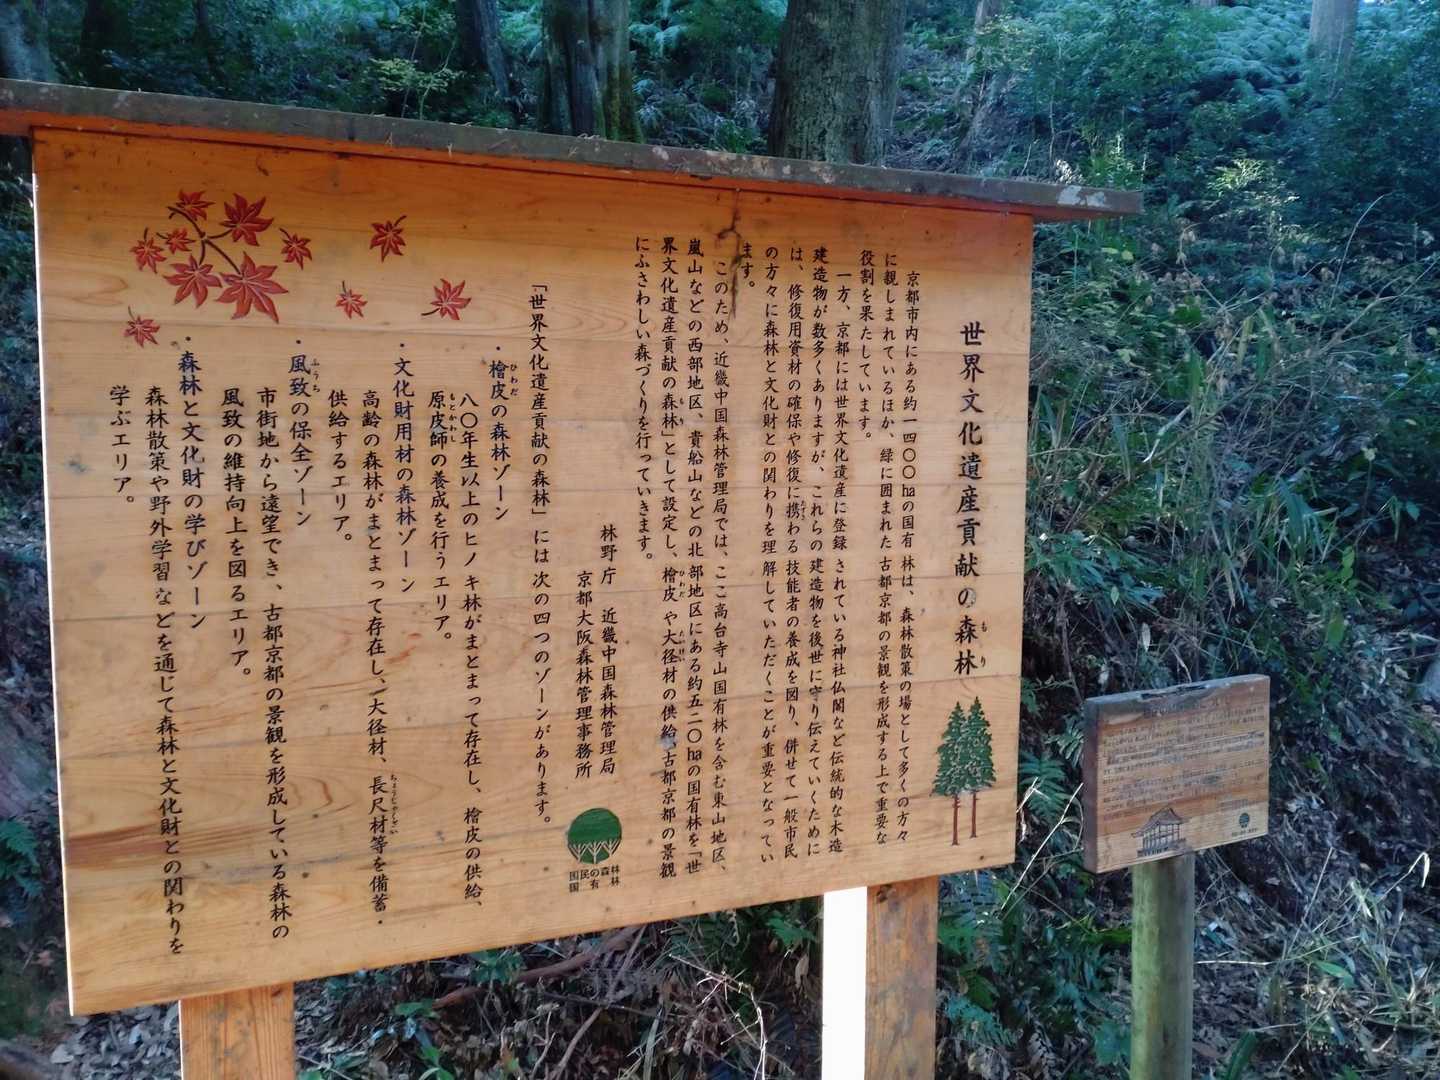 世界文化遺産貢献の森林
もり
京都市内にある約一四〇〇haの国有林は、森林散策の場として多くの方々
に親しまれているほか、緑に囲まれた古都京都の景観を形成する上で重要な
役割を果たしています。
一方、京都には世界文化遺産に登録されている神社仏閣など伝統的な木造
建造物が数多くありますが、これらの建造物を後世に守り伝えていくために
は、修復用資材の確保や修復に携わる技能者の養成を図り、併せて一般市民
の方々に森林と文化財との関わりを理解していただくことが重要となってい
ます。
このため、近畿中国森林管理局では、ここ高台寺山国有林を含む東山地区、
嵐山などの西部地区、貴船山などの北部地区にある約五二〇haの国有林を「世
界文化遺産貢献の森林」として設定し、檜皮や大径材の供給、古都京都の景観
にふさわしい森づくりを行っていきます。
林野庁 近畿中国森林管理局
京都大阪森林管理事務所
国民の森林
国有林
「世界文化遺産貢献の森林」には次の四つのゾーンがあります。
・檜皮の森林ゾーン
ひわだ
八〇年生以上のヒノキ林がまとまって存在し、檜皮の供給、
原皮師の養成を行うエリア。
もとかわし
・文化財用材の森林ゾーン
高齢の森林がまとまって存在し、大径材、長尺材等を備蓄・
供給するエリア。
・風致の保全ゾーン
ふうち
市街地から遠望でき、古都京都の景観を形成している森林の
風致の維持向上を図るエリア。
・森林と文化財の学びゾーン
森林散策や野外学習などを通じて森林と文化財との関わりを
学ぶエリア。